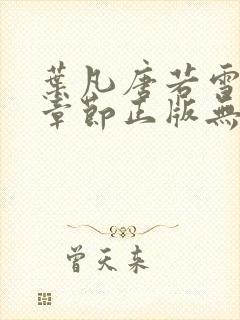 葉凡唐若雪
章節正版無
曾天來